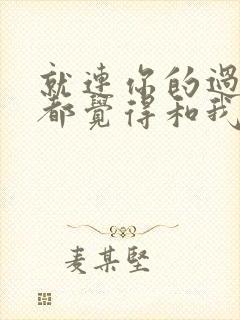 就連你的過
都覺得和我
麦某堅